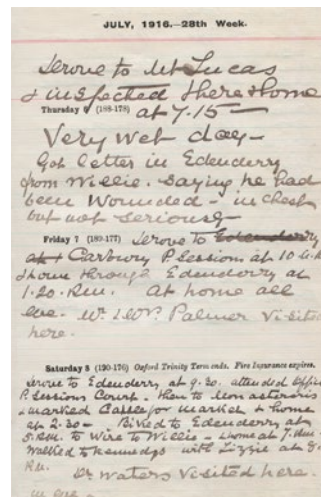 JULY, 1916.—28th Week.
Drove to Mt Lucas
& inspected there & home
Thursday 6 (188-178) at 7.15—
Very wet day—
Got letter in Edenderry
from Willie. Saying he had
been Wounded - in chest
but not seriously
Friday 7 (189-177) Drove to Edenderry
at Carbury P. Sessions at 10 a.m
& home through Edenderry at
1.20. P.m. At home all
eve. Palmer Visited
here.
Saturday 8 (190-176) Oxford Trinity Term ends. Fire Insurance expires.
Drove to Edenderry at 9.30. attended Office
P. Sessions Court. then to Monasteroris
& marked Cattle for market & home
at 2.30 - Biked to Edenderry at
5. P.m. to Wire to Willie - & home at 7. P.m.
Walked to Kennedys with Lizzie at
P.m.
Dr Waters Visited here.
in eve -